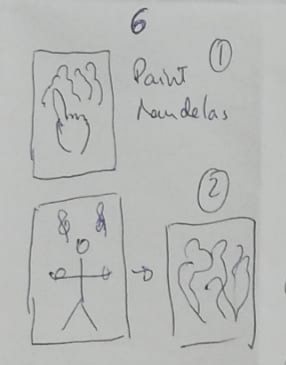 6
Paint ①
Mandelas
②